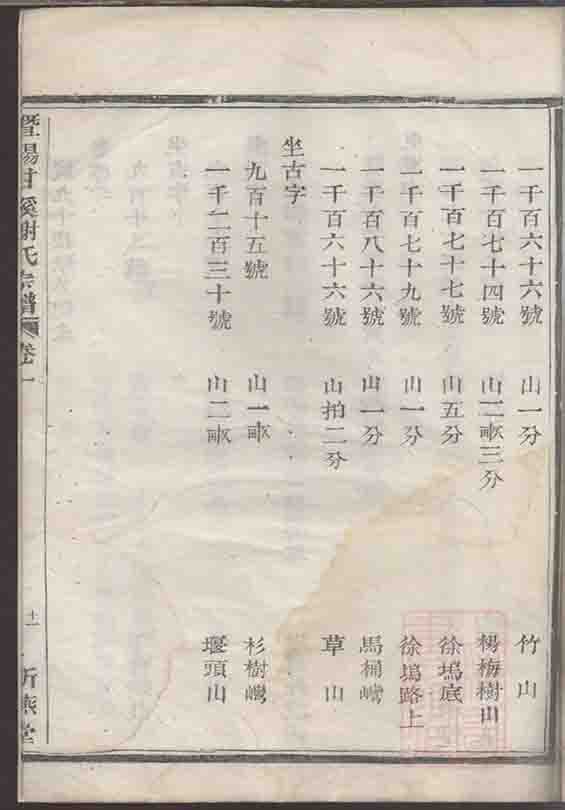 一千百六十六號 山一分 竹山
一千百七十四號 山二畝三分 楊梅樹山
一千百七十七號 山五分 徐塢底
一千百七十九號 山一分 徐塢路上
一千百八十六號 山一分 馬桶嶹
一千百六十六號 山拍二分 草山
坐古字
九百十五號 山一畝 杉樹嶹
一千二百三十號 山二畝 堰頭山
暨陽甘溪謝氏宗譜 卷一 十一